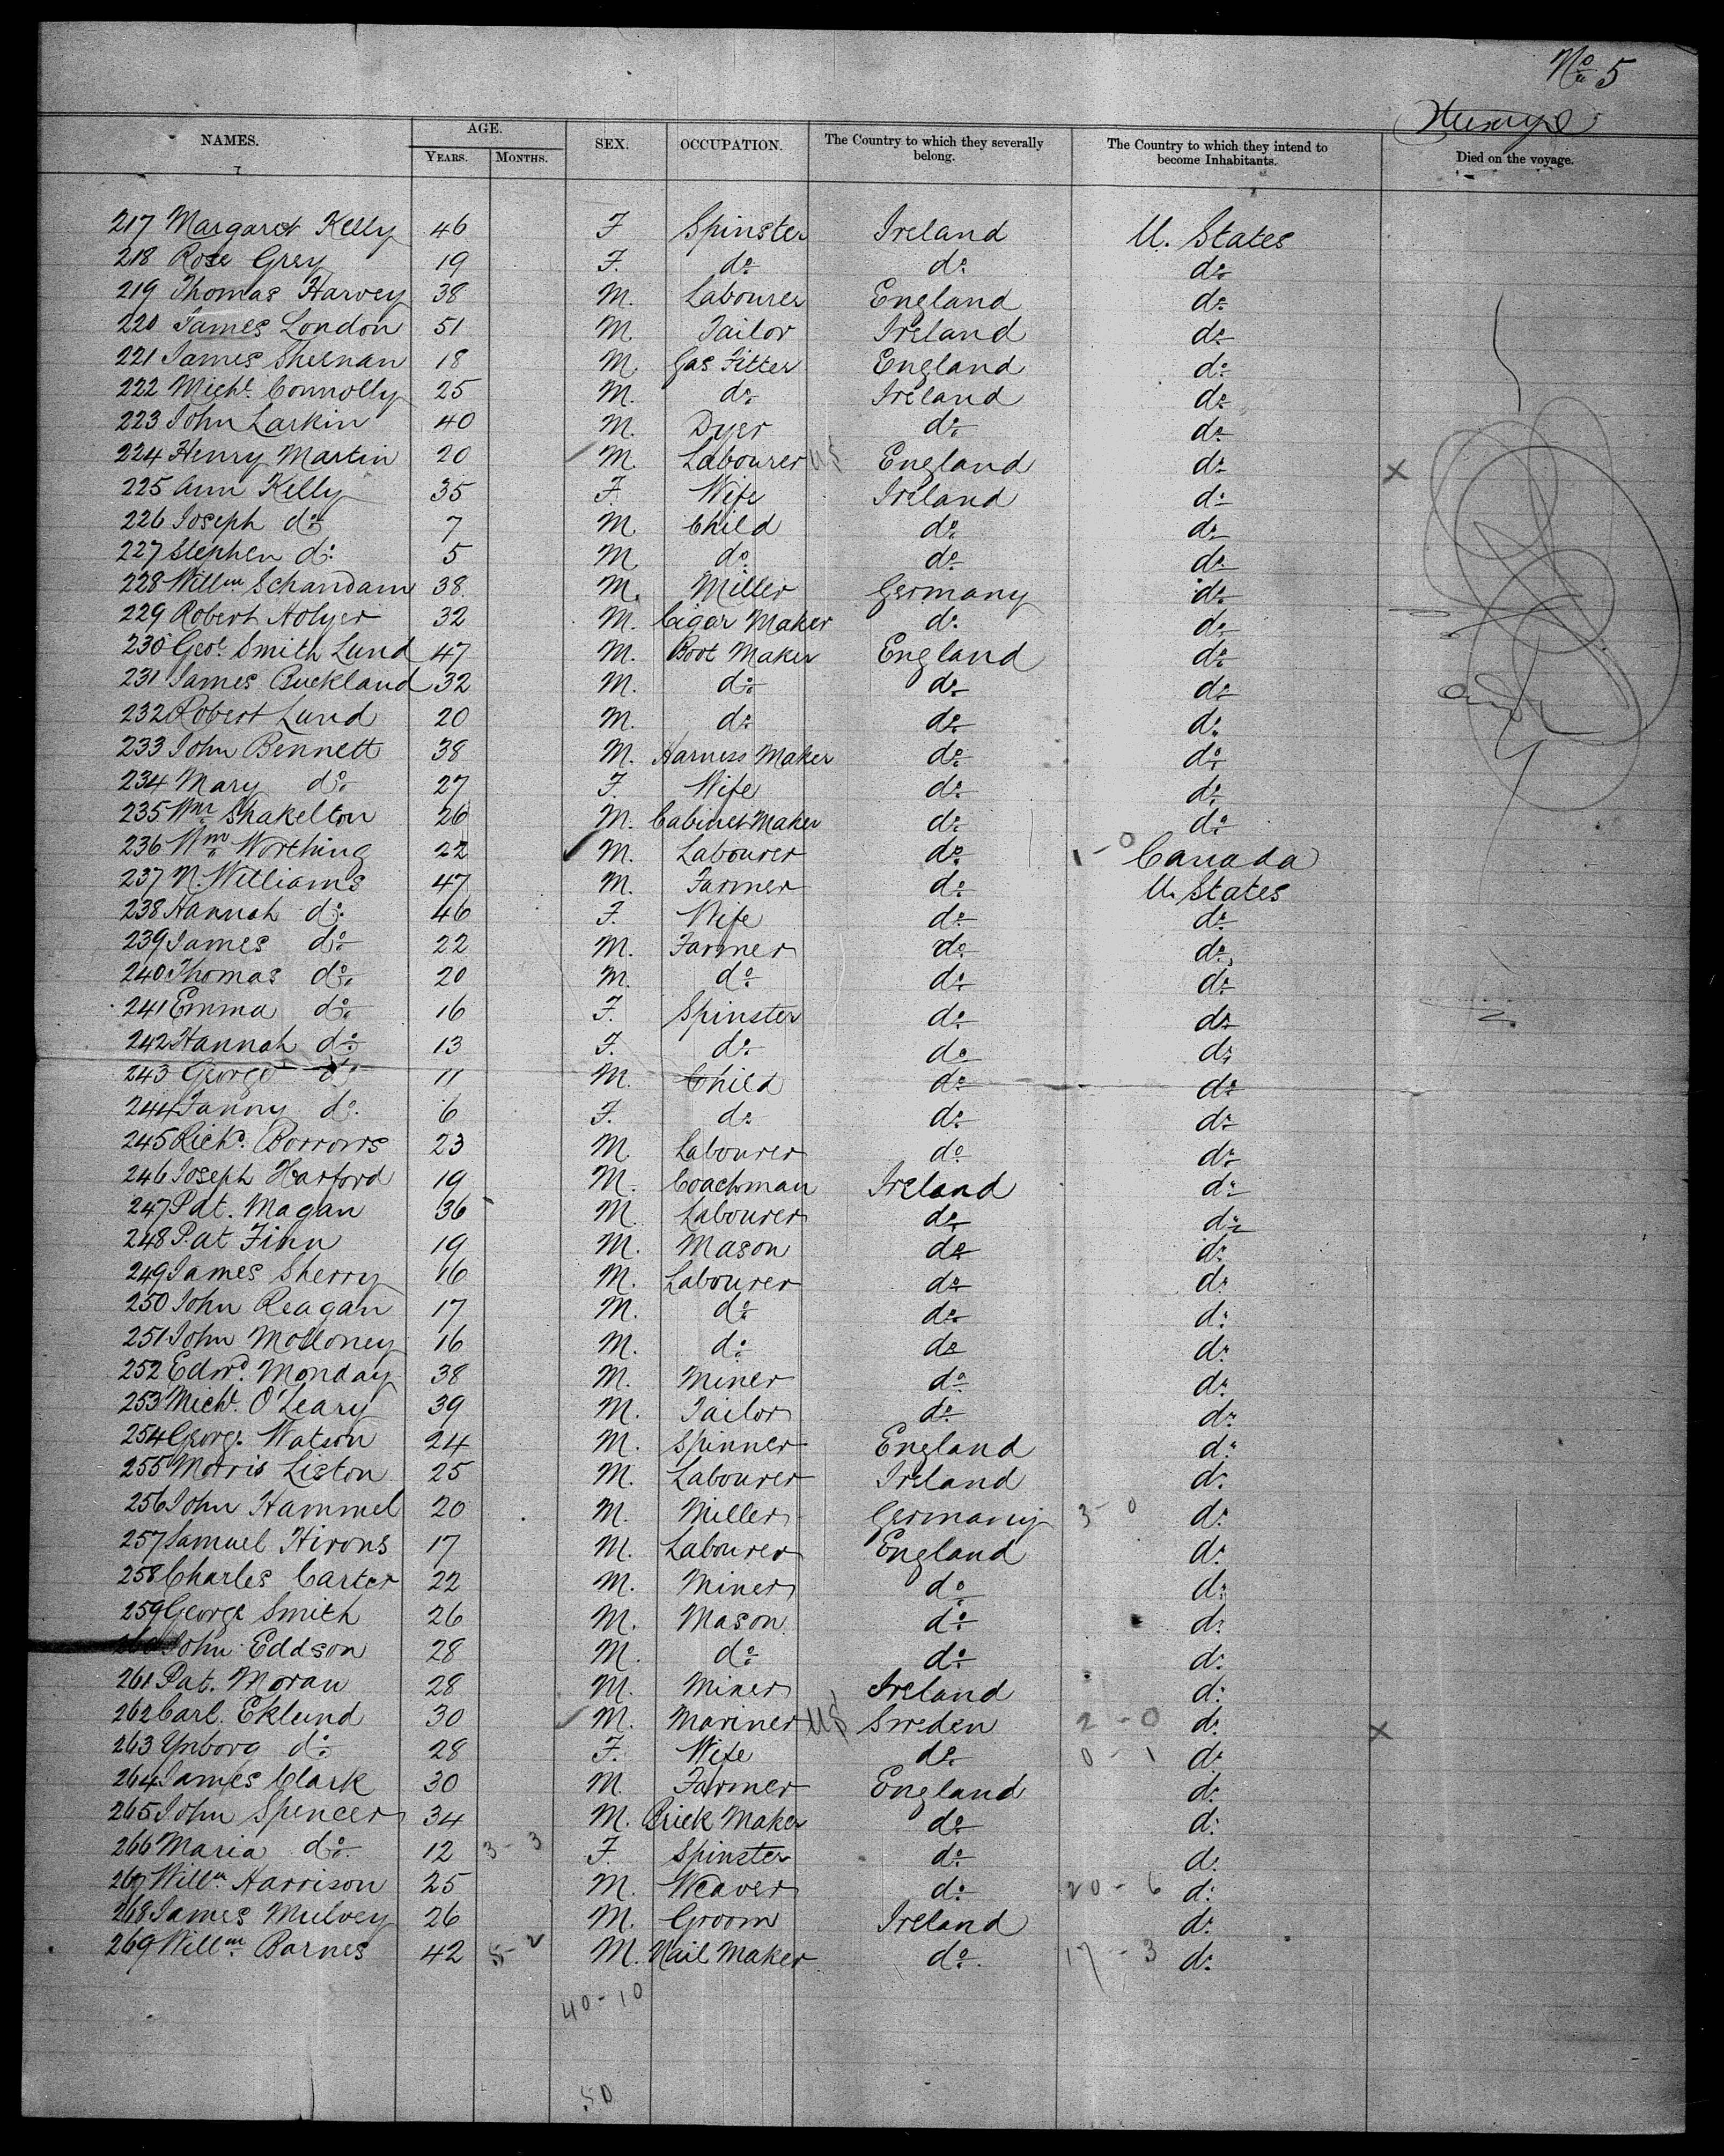 No 5
NAMES. AGE. SEX. OCCUPATION. The Country to which they severally belong. The Country to which they intend to become Inhabitants. Died on the voyage.
YEARS. MONTHS.
217 Margaret Kelly 46 F Spinster Ireland U. States
218 Rose Grey 19 F. do do do
219 Thomas Harvey 38 M. Labourer England do
220 James London 51 M Tailor Ireland do
221 James Sheenan 18 M. Gas Fitter England do
222 Michl. Connolly 25 M. do Ireland do
223 John Larkin 40 M. Dyer do do
224 Henry Martin 20 M. Labourer US England do X
225 Ann Kelly 35 F. Wife Ireland do
226 Joseph do 7 M. Child do do
227 Stephen do 5 M do do do
228 Willm. Schandam 38. M. Miller Germany do
229 Robert Holyer 32 M. Cigar Maker do do
230 Geo. Smith Lund 47 M. Boot Maker England do
231 James Buckland 32 M. do do do
232 Robert Lund 20 M. do do do
233 John Bennett 38 M. Harness Maker do do
234 Mary do 27 F. Wife do do
235 Wm Shakelton 26 M. Cabinet Maker do do
236 Wm Worthing 22 M. Labourer do 1 - 0 Canada
237 N. Williams 47 M. Farmer do U. States
238 Hannah do 46 F. Wife do do
239 James do 22 M. Farmer do do
240 Thomas do 20 M. do do do
241 Emma do 16 F. Spinster do do
242 Hannah do 13 F. do do do
243 George do 11 M. Child do do
244 Fanny do. 6 F. do do do
245 Richd. Borrows 23 M. Labourer do do
246 Joseph Harford 19 M. Coachman Ireland do
247 Pat. Magan 36 M. Labourer do do
248 Pat Finn 19 M. Mason do do
249 James Sherry 16 M. Labourer do do
250 John Reagan 17 M. do do do
251 John Molloney 16 M. do do do
252 Edwd. Monday 38 M. Miner do do
253 Michl. O'Leary 39 M. Tailor do do
254 Georg. Watson 24 M. Spinner England do
255 Morris Liston 25 M. Labourer Ireland do
256 John Hammel 20 M. Miller Germany 3 - 0 do
257 Samuel Hirons 17 M. Labourer England do
258 Charles Carter 22 M. Miner do do
259 George Smith 26 M. Mason do do
260 John Eddson 28 M. do do do
261 Pat. Moran 28 M. Miner Ireland do
262 Carl. Eklund 30 M. Mariner US Sweden 2 - 0 do X
263 Ynborg do 28 F. Wife do 0 - 1 do
264 James Clark 30 M. Farmer England do
265 John Spencer 34 M. Brick Maker do do
266 Maria do 12 3 - 3 F. Spinster do do
267 Willm Harrison 25 M. Weaver do 20 - 6 do
268 James Mulvey 26 M. Groom Ireland do
269 Willm. Barnes 42 5 - 2 M. Nail Maker do. 17 - 3 do
40 - 10
50